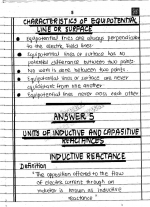 CHARACTERISTICS OF EQUIPOTENTIAL
LINE OR SURFACE
Equipotential lines are always perpendicular
to the electric field lines.
Equipotential lines or surface has no
potential difference between two points.
No work is done between two points.
Equipotential lines or surface are never
equidistant from one another
Equipotential lines never cross each other
ANSWER 5
UNITS OF INDUCTIVE AND CAPASITIVE
REACTANCES
INDUCTIVE REACTANCE
Definition
"The opposition offered to the flow
of electric current through an
inductor is known as inductive
reactance"